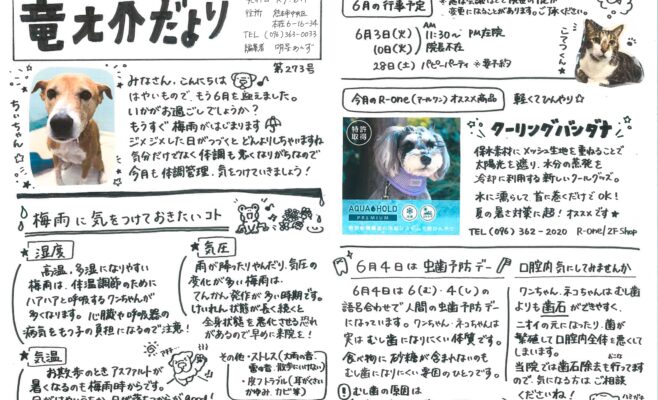 竜之介だより
住所 熊本市中央区
本荘6-16-34
TEL (096) 363-0033
編集者
第273号
ちぃちゃん☆
みなさん、こんにちは
はやいもので、もう6月を迎えました。
いかがお過ごしでしょうか？
もうすぐ梅雨がはじまります
ジメジメした日がつづくとどんよりしちゃいますね
気分だけでなく体調も悪くなりがちなので
今月も体調管理、気をつけていきましょう！
梅雨に気をつけておきたいコト
★湿度
高温、多湿になりやすい
梅雨は、体温調節のために
ハアハアと呼吸するワンちゃんが
多くなります。心臓や呼吸器の
病気をもつ子の負担になるので注意！
★気圧
雨が降ったりやんだり、気圧の
変化が多い梅雨は、
てんかん発作が多い時期です。
けいれん状態が長く続くと
全身状態を悪化させる恐れ
があるので早めに来院を！
★気温
お散歩のときアスファルトが
暑くなるのも梅雨時からです。
その他・ストレス(大雨の音、
雷の音、散歩にいけない)
・皮フトラブル(耳がくさい
かゆみ、カビ等)
6月の行事予定
変更になることがあります。ご了承ください。
6月3日(火) AM 11:30〜 PM在院
10日(火) 院長不在
28日(土) パピーパーティ ※要予約
こてつくん☆
今月のR-one(アールワン)オススメ商品
軽くてひんやり☆
クーリングバンダナ
特許
取得
AQUA HOLD
PREMIUM
保水素材にメッシュ生地を重ねることで
太陽光を遮り、水分の蒸発を
冷却に利用する新しいクールグッズ。
水に濡らして首に巻くだけでOK！
夏の暑さ対策に超！オススメです★
TEL (096) 362-2020 R-one/2F Shop
6月4日は虫歯予防デー
6月4日は6(む)・4(し)の
語呂合わせで人間の虫歯予防デー
になっています。ワンちゃん・ネコちゃんは
実はむし歯になりにくい体質です。
食べ物に砂糖が含まれないのも
むし歯になりにくい要因のひとつです。
むし歯の原因は
口腔内気にしてみませんか
ワンちゃん、ネコちゃんはむし歯
よりも歯石ができやすく、
ニオイの元になったり、菌が
繁殖して口腔内全体を悪くして
しまいます。
当院では歯石除去も行ってます
ので、気になる方はご相談
くださいね！